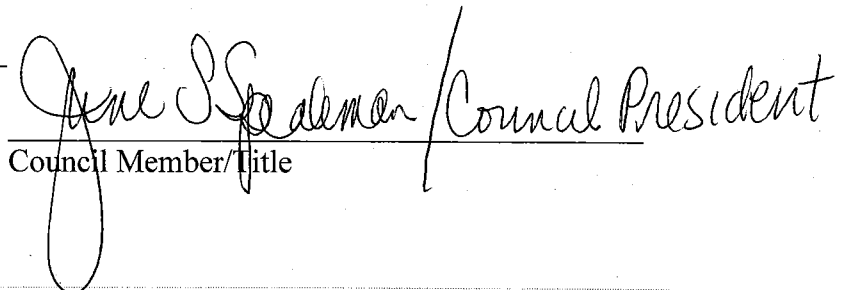 June S Speakman / Council President
Council Member/Title